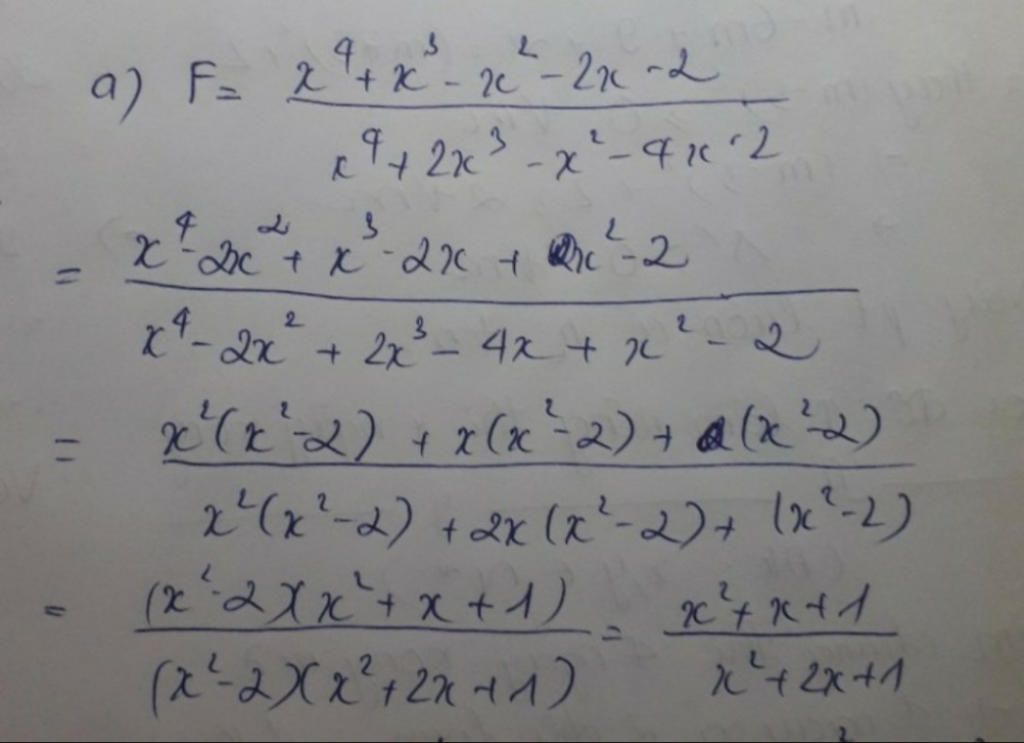 a) F = (x⁴ + x³ - x² - 2x - 2) / (x⁴ + 2x³ - x² - 4x - 2)
= (x⁴ - 2x² + x³ - 2x + x² - 2) / (x⁴ - 2x² + 2x³ - 4x + x² - 2)
= (x²(x² - 2) + x(x² - 2) + (x² - 2)) / (x²(x² - 2) + 2x(x² - 2) + (x² - 2))
= ((x² - 2)(x² + x + 1)) / ((x² - 2)(x² + 2x + 1)) = (x² + x + 1) / (x² + 2x + 1)